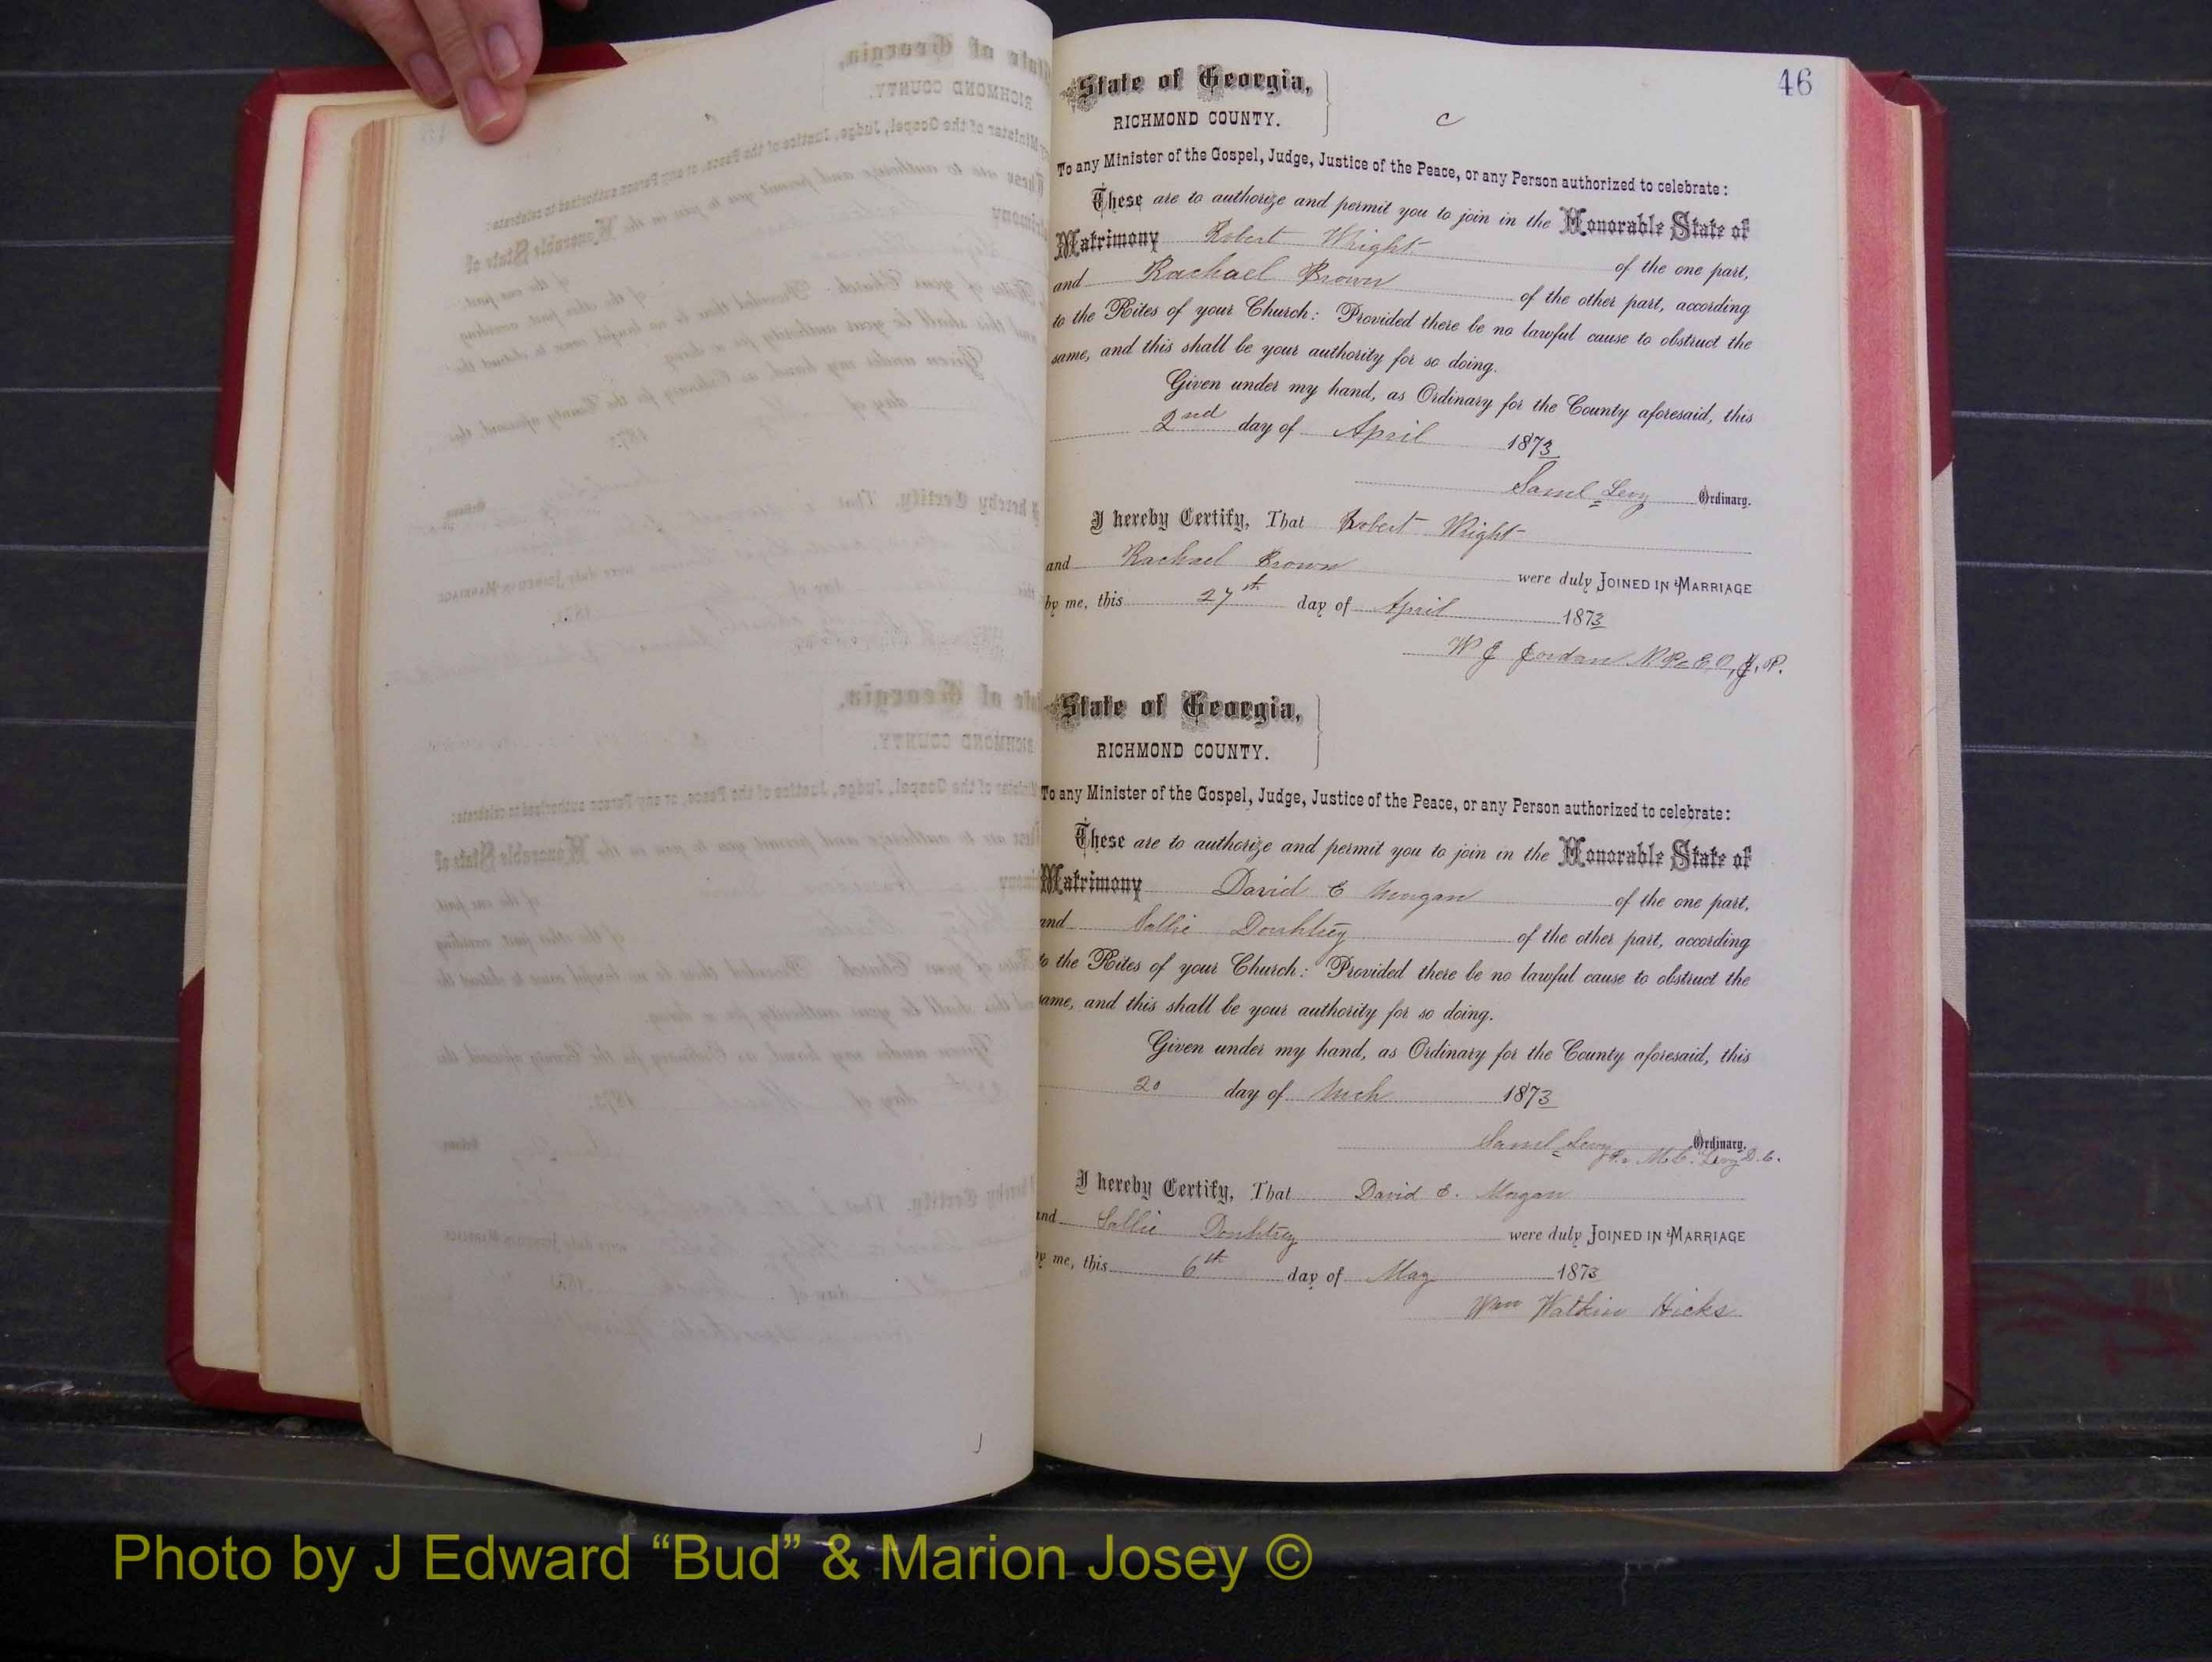 46
State of Georgia,
RICHMOND COUNTY.
C
To any Minister of the Gospel, Judge, Justice of the Peace, or any Person authorized to celebrate:
These are to authorize and permit you to join in the Honorable State of
Matrimony Robert Wright of the one part,
and Rachael Brown of the other part, according
to the Rites of your Church: Provided there be no lawful cause to obstruct the
same, and this shall be your authority for so doing.
Given under my hand, as Ordinary for the County aforesaid, this
2nd day of April 1873
Saml Levy Ordinary.
I hereby Certify, That Robert Wright
and Rachael Brown were duly JOINED IN MARRIAGE
by me, this 27th day of April 1873
W J Jordan J. P.
State of Georgia,
RICHMOND COUNTY.
To any Minister of the Gospel, Judge, Justice of the Peace, or any Person authorized to celebrate:
These are to authorize and permit you to join in the Honorable State of
Matrimony David E Morgan of the one part,
and Sallie of the other part, according
to the Rites of your Church: Provided there be no lawful cause to obstruct the
same, and this shall be your authority for so doing.
Given under my hand, as Ordinary for the County aforesaid, this
20 day of Mch 1873
Saml Levy Ordinary.
Pr M.C. Levy D.C.
I hereby Certify, That David E. Morgan
and Sallie were duly JOINED IN MARRIAGE
by me, this 6th day of May 1873
Wm Watkin Hicks
Photo by J Edward “Bud” & Marion Josey ©